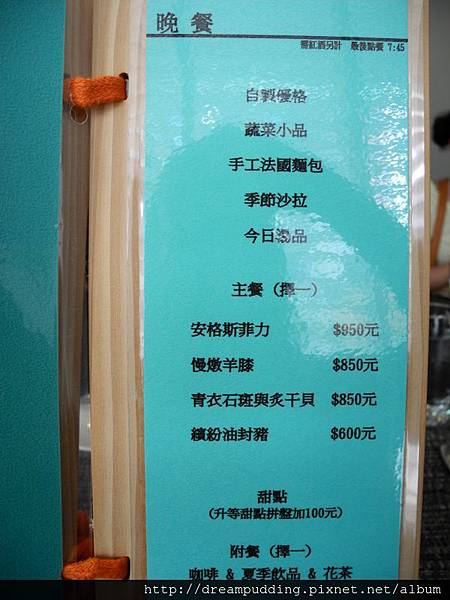 晚餐
需紅酒另計 最後點餐 7:45
自製優格
蔬菜小品
手工法國麵包
季節沙拉
今日湯品
主餐 (擇一)
安格斯菲力 $950元
慢燉羊膝 $850元
青衣石斑與炙干貝 $850元
繽紛油封豬 $600元
甜點
(升等甜點拼盤加100元)
附餐 (擇一)
咖啡 & 夏季飲品 & 花茶
http://dreampudding.pixnet.net/album